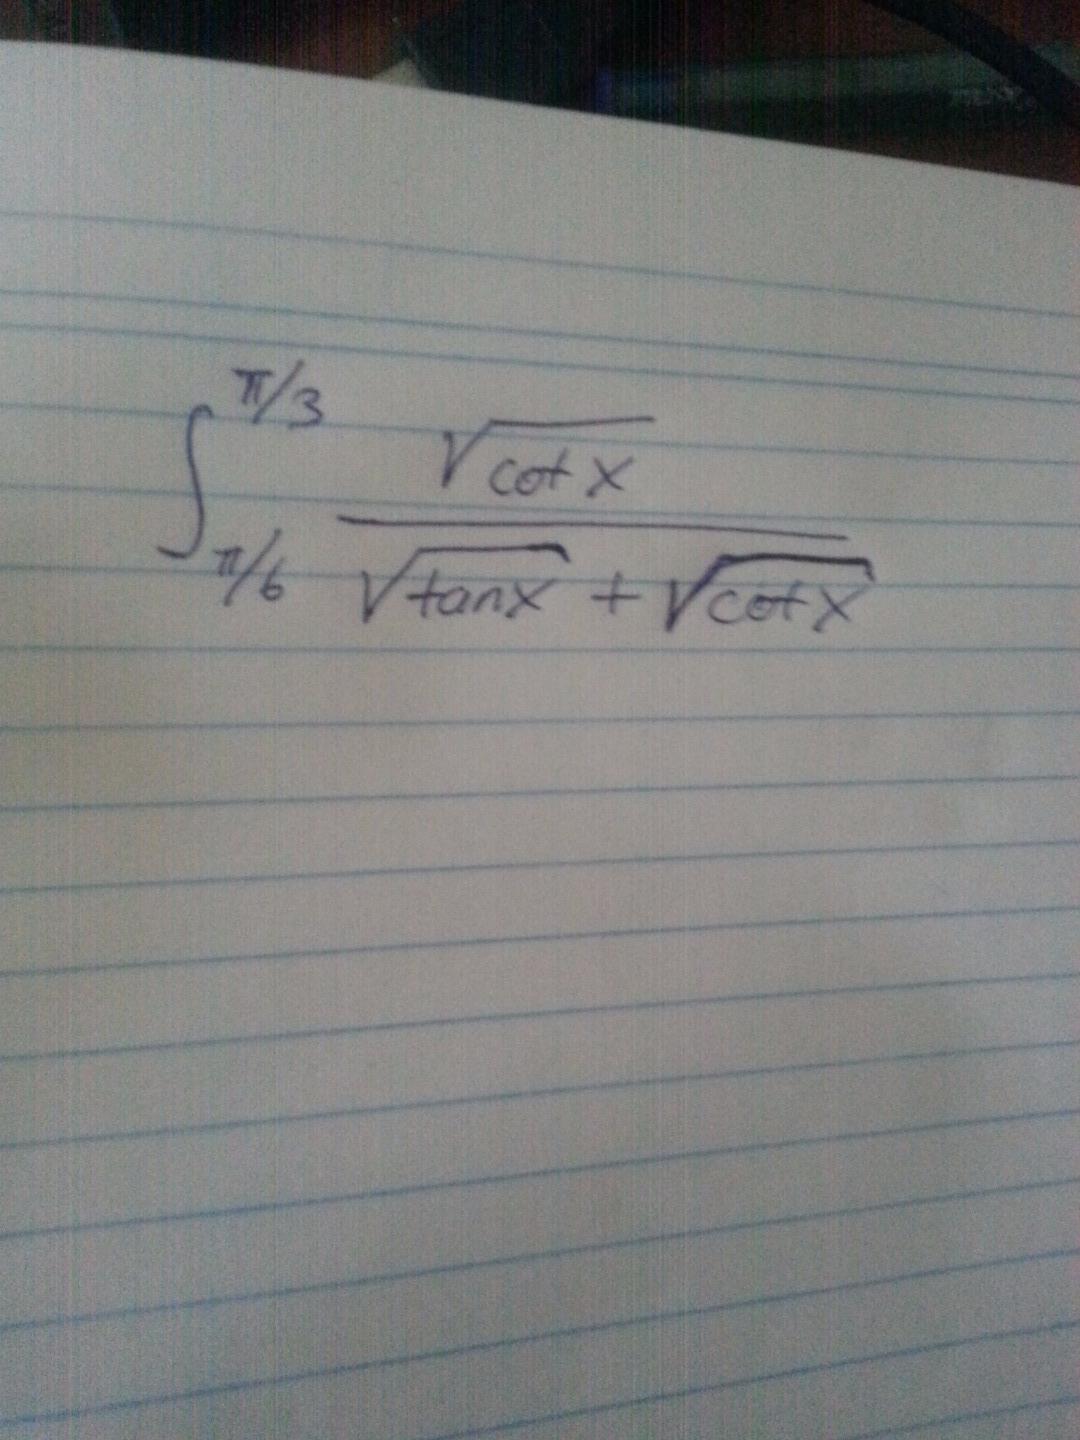 ∫_{π/6}^{π/3} \frac{√(cot x)}{√(tan x) + √(cot x)}